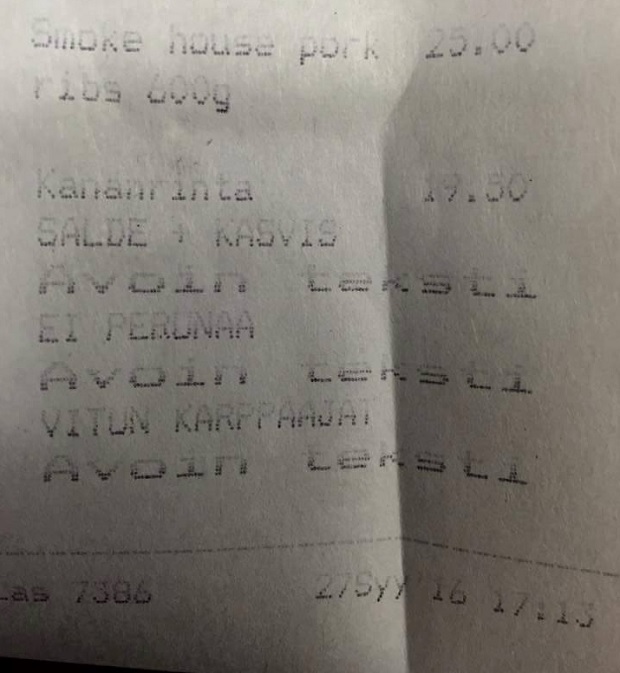 Smoke house pork 25.00
ribs 600g
Kananrinta 19.50
SALDE + KASVIS
Avoin teksti
EI PERUNAA
Avoin teksti
VITUN KARPPAAJAT
Avoin teksti
Las 7386 27Syy'16 17:13